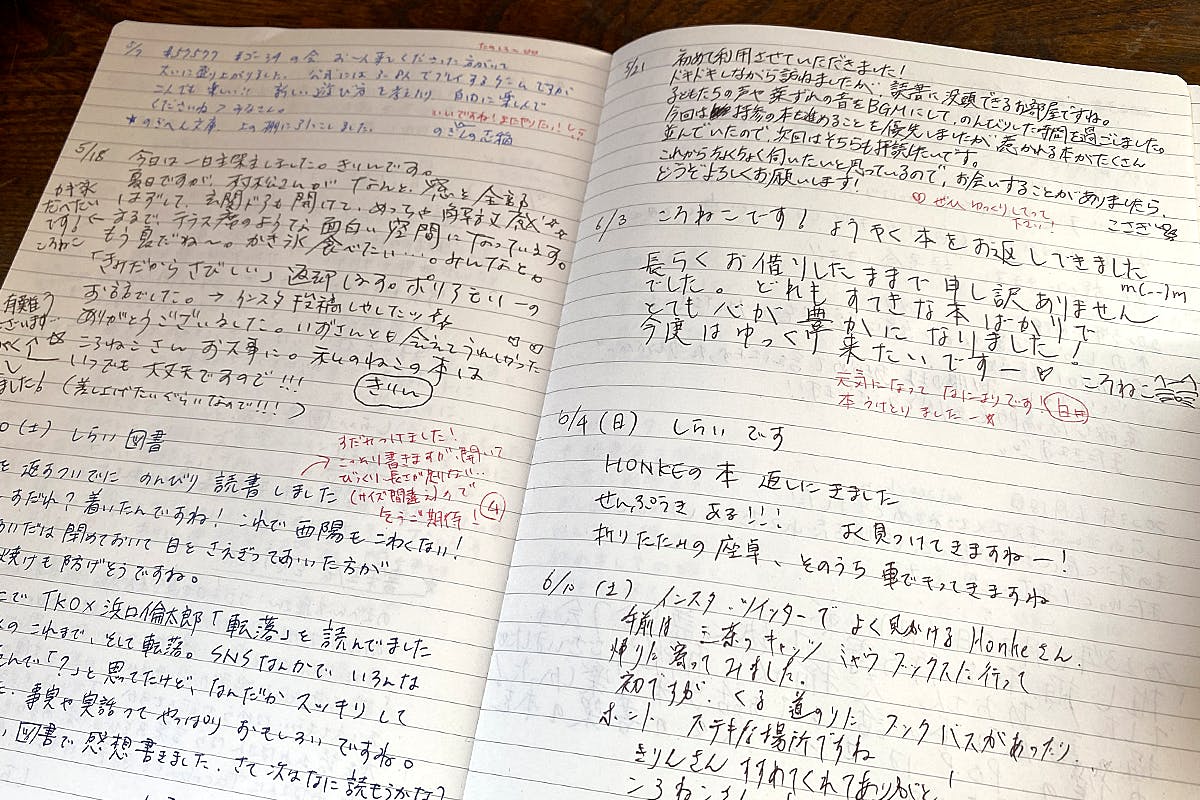 5/7 #57577 #ゴーヨンの会 お一人来てくださった方がいて
大いに盛り上がりました。公式には3-8人でプレイするゲームですが
二人でも楽しい!! 新しい遊び方を考えたり 自由に楽しんで
くださいね みなさん。
いいですね!またやりたい!
★のきぺん文庫 上の棚に
5/18 今日は一日 きりんです。
夏日ですが、村松さんが なんと、窓を全部
はずして、玄関ドアも開けて、めっちゃ 解放感
まるで、テラス席のような 面白い空間になっています。
もう夏だね〜。かき氷 食べたい…。みんなと
かき氷
たべたい
です!
ころねこ
「きみだからさびしい」返却します。ポリアモリーの
お話でした。→インスタ投稿しやした
ありがとうございました。いがさんとも会えてうれしかった
ころねこさん お大事に。私のねこの本は
いつでも 大丈夫ですので!!!
(差し上げたいぐらいなので!!!)
きりん
有難う
ございます…
(土) しらい図書
を返すついでに のんびり 読書しました
すだれ?着いたんですね!これで西陽もこわくない!
あいだは閉めておいて 日をさえぎってあいた方が
焼けも防げそうですね。
すだれつけました!
こっそり書きますが、開いて
びっくり長さが足りない…
(サイズ間違え)ので
乞うご期待! ④
で「KO×浜口倫太郎「転落」を読んでました
のこれまで、そして転落。SNSなんかで いろんな
んで「?」と思ってたけど、なんだか スッキリして
事実や実話ってやっぱり おもしろいですね。
図書で感想書きました。さて次はなに読もうかな?
5/21 初めて利用させていただきました!
ドキドキしながら訪ねましたが、読書に没頭できるお部屋ですね。
子どもたちの声や葉ずれの音をBGMにして、のんびりした時間を過ごしました。
今回は持参の本を進めることを優先しましたが、惹かれる本がたくさん
並んでいたので、次回はそちらも拝読したいです。
これからちょくちょく伺いたいと思っているので、お会いすることがありましたら、
どうぞよろしくお願いします! こさぎ
ぜひ ゆっくりしてって
下さい!
6/3 ころねこです! ようやく本をお返しできました
長らくお借りしたままで申し訳ありません m(--)m
でした。どれもすてきな本ばかりで
とても心が豊かになりました!
今度はゆっくり来たいですー♡ ころねこ
元気になって なによりです!
本うけとりましたー
6/4(日) しらいです
HONKEの本 返しにきました
せんぷうき ある!!! よく見つけてきますねー!
折りたたみの座卓、そのうち 車でもってきますね
6/10 (土) インスタ、ツイッターで よく見かける Honkeさん。
午前は 三茶の キャッツ ミャウ ブックスに行って
帰りに寄ってみました。
初ですが、くる 道のりに ブックバスがあったり、…
ホント ステキな場所ですね
きりんさん すすめてくれてありがと!